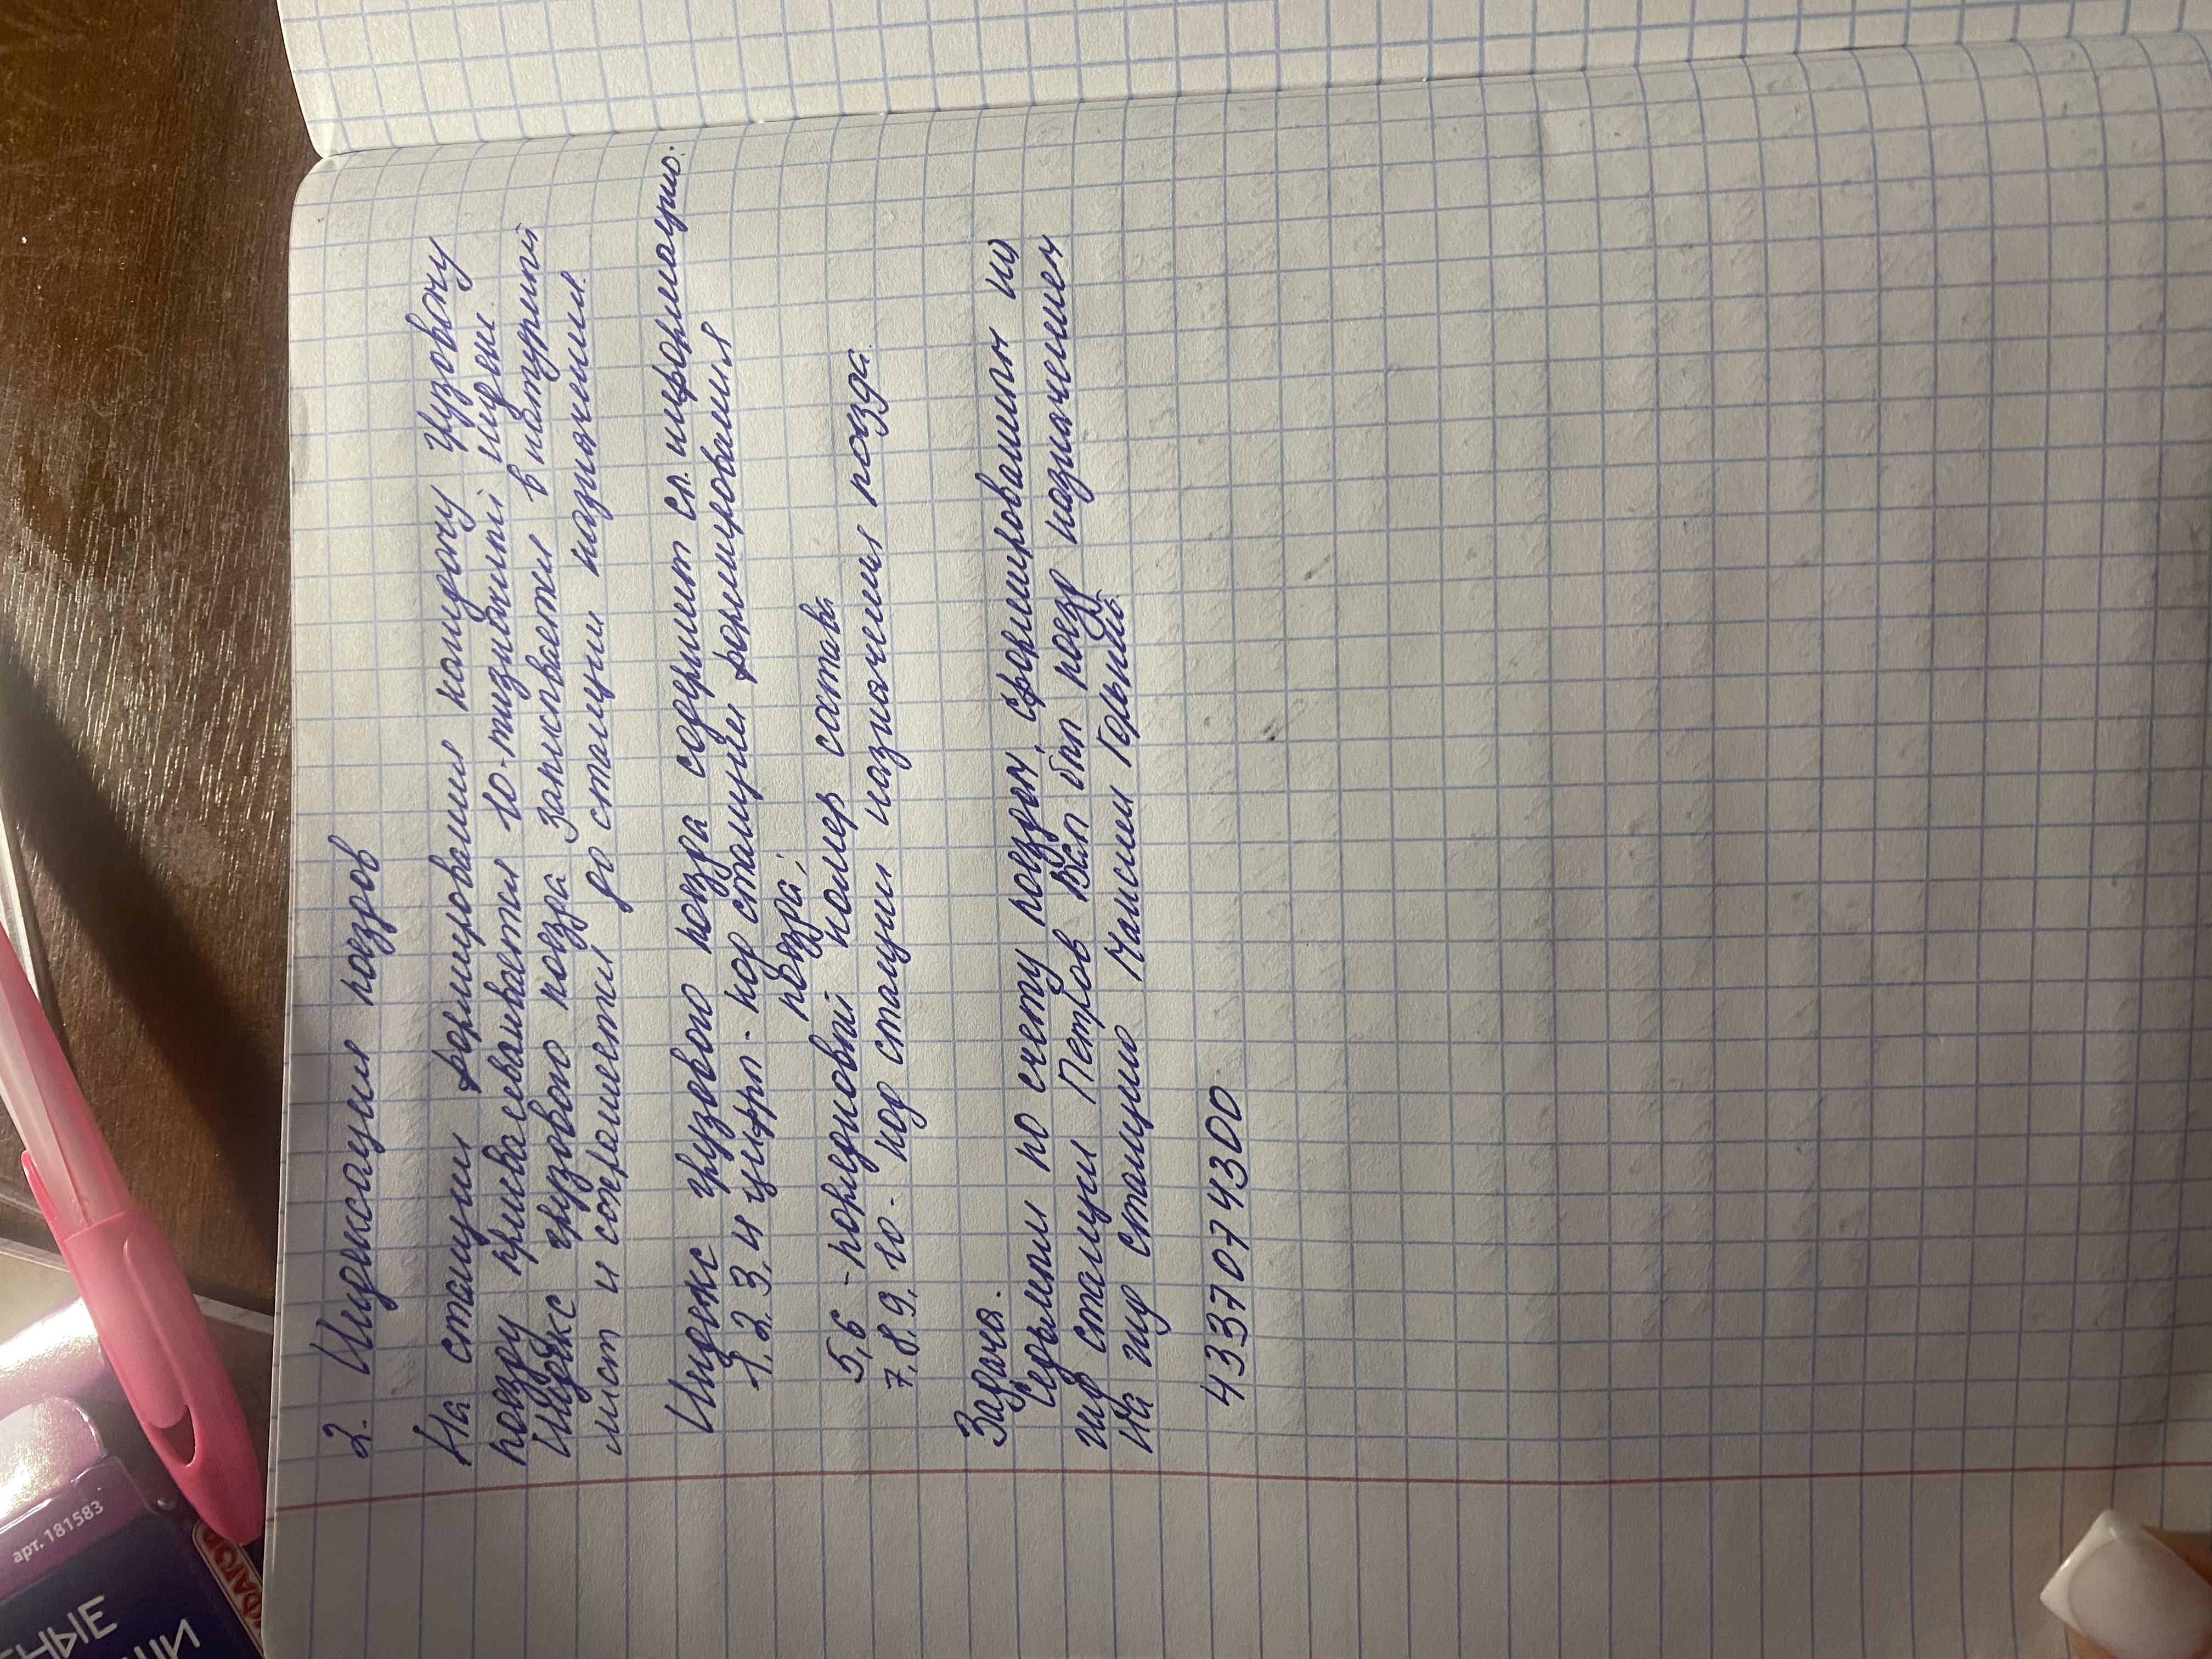 2. Индексация поездов
На станции формирования каждому грузовому
поезду присваивается 10-тизначный индекс.
Индекс грузового поезда записывается в натурный
лист и сохраняется до станции назначения.
Индекс грузового поезда содержит сл. информацию:
1, 2, 3, 4 цифры - код станции формирования
поезда;
5, 6 - порядковый номер состава
7, 8, 9, 10 - код станции назначения поезда.
Задача.
Седьмым по счету поездом, сформированным на
жд станции Петров Вал был поезд назначением
на жд станцию Максим Горький.
4337 07 4300
арт. 181583